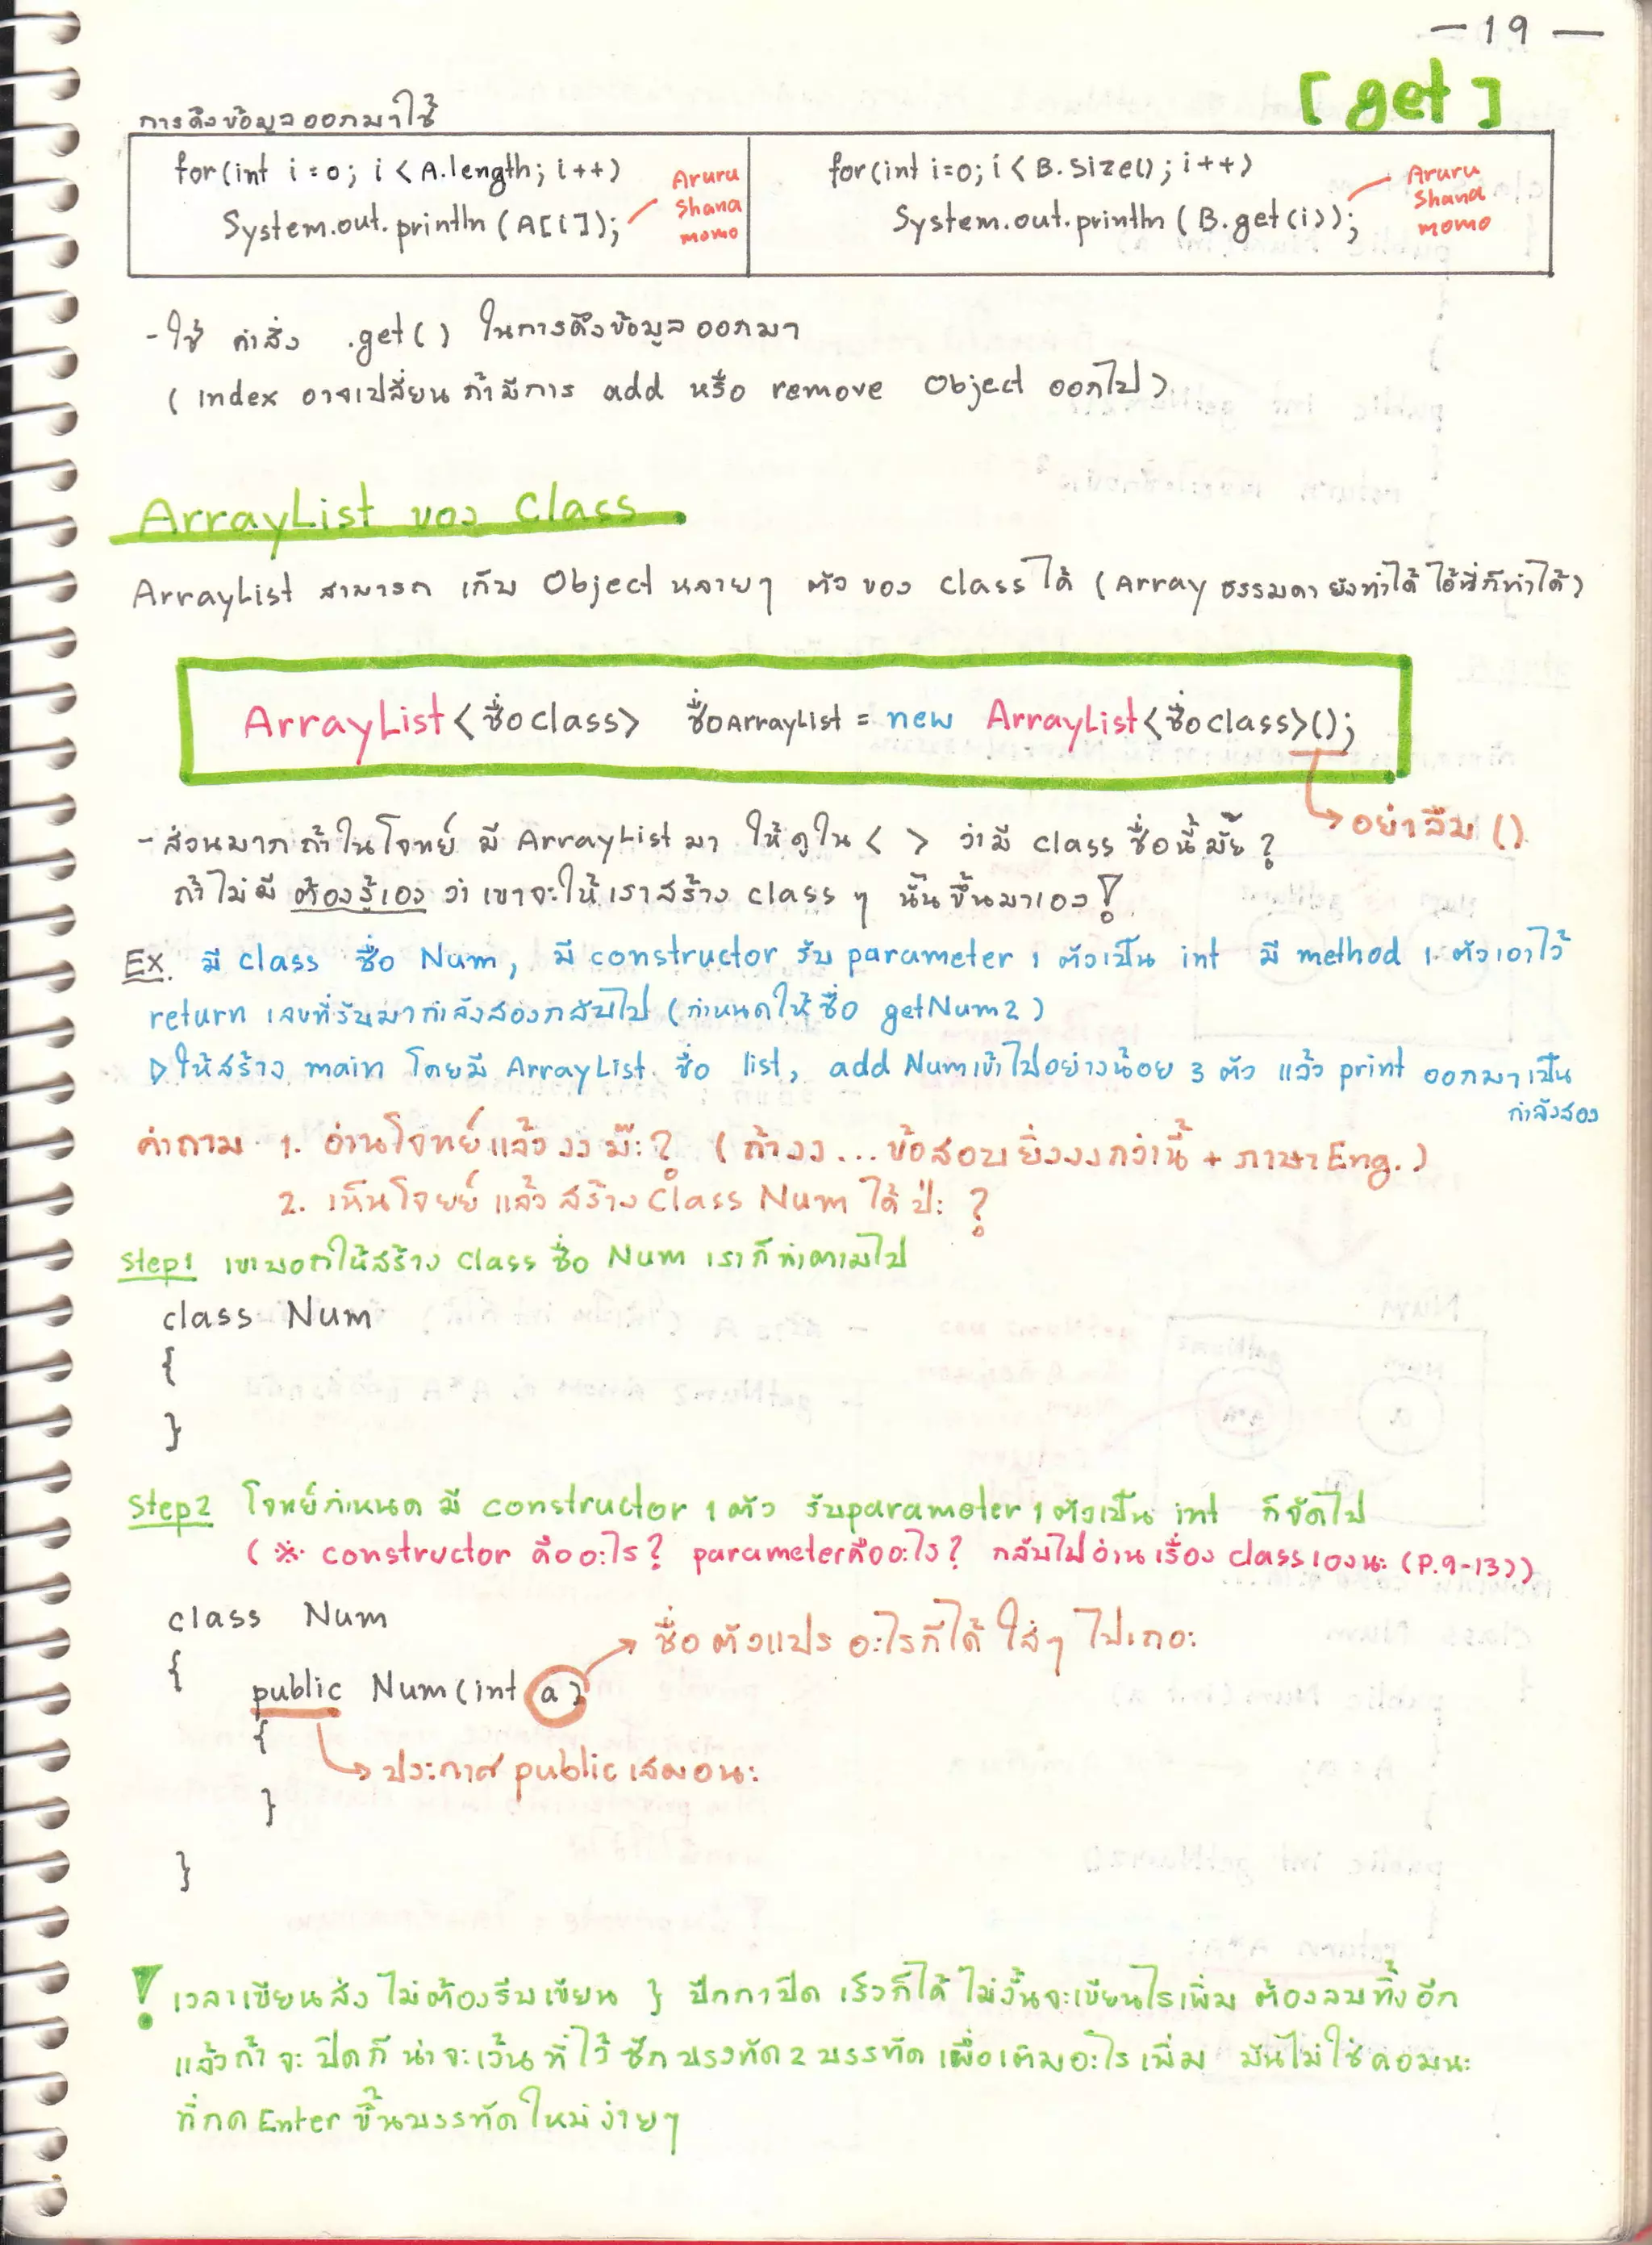 — 19 —
[get]
การดึงข้อมูลออกมาใช้
for(int i=0; i < A.length; i++)
System.out.println (A[i]);
Aruru
Shana
momo
for(int i=0; i < B.size(); i++)
System.out.println (B.get(i));
Aruru
Shana
momo
- ใช้ คำสั่ง .get() ในการดึงข้อมูลออกมา
( Index อาจเปลี่ยน ถ้ามีการ add หรือ remove Object ออกไป )
ArrayList ของ Class
ArrayList สามารถ เก็บ Object หลายๆ ตัว ของ class ได้ (Array ธรรมดา ยังทำได้ ไอ้นี่ก็ทำได้)
ArrayList<ชื่อclass> ชื่อArrayList = new ArrayList<ชื่อclass>();
อย่าลืม ()
- ส่วนมาก ถ้าในโจทย์ มี ArrayList มา ให้ดูใน < > ว่ามี class ชื่อนี้มั้ย ?
ถ้าไม่มี ต้องรู้เอง ว่า เขาจะให้เราสร้าง class ๆ นั้นขึ้นมาเอง !
Ex. มี class ชื่อ Num, มี constructor รับ parameter 1 ตัวเป็น int มี method 1 ตัวเอาไว้
return เลขที่รับมากำลังสองกลับไป (กำหนดให้ชื่อ getNum2)
▷ ให้สร้าง main โดยมี ArrayList ชื่อ list, add Numเข้าไปอย่างน้อย 3 ตัว แล้ว print ออกมาเป็น
กำลังสอง
คำถาม 1. อ่านโจทย์แล้ว งง มั๊ะ ? ( ถ้างง ... ข้อสอบยิ่งงงกว่านี้ + ภาษา Eng. )
2. เห็นโจยย์ แล้ว สร้าง Class Num ได้ ป่ะ ?
Step1 เขาบอกให้สร้าง class ชื่อ Num เราก็ทำตามไป
class Num
{
}
Step2 โจทย์กำหนด มี constructor 1 ตัว รับparameter 1 ตัวเป็น int ก็จัดไป
( ※ constructor คืออะไร? parameterคืออะไร? กลับไปอ่าน เรื่อง class เองนะ (P.9-13))
class Num
{
public Num(int a)
ชื่อ ตัวแปร อะไรก็ได้ ใส่ๆ ไปเถอะ
{
ประกาศ public เสมอนะ
}
}
! เวลาเขียนส่ง ไม่ต้องรีบเขียน } ปีกกาปิด เร็วก็ได้ ไม่งั้นจะเขียนไรเพิ่ม ต้องลบทิ้งอีก
แล้วถ้า จะ ปิดก็ น่าจะเว้น ที่ไว้ ซัก บรรทัด 2 บรรทัด เผื่อเติมอะไร เพิ่ม มันไม่ใช่คอมนะ
ที่กด Enter ขึ้นบรรทัดใหม่ ง่ายๆ